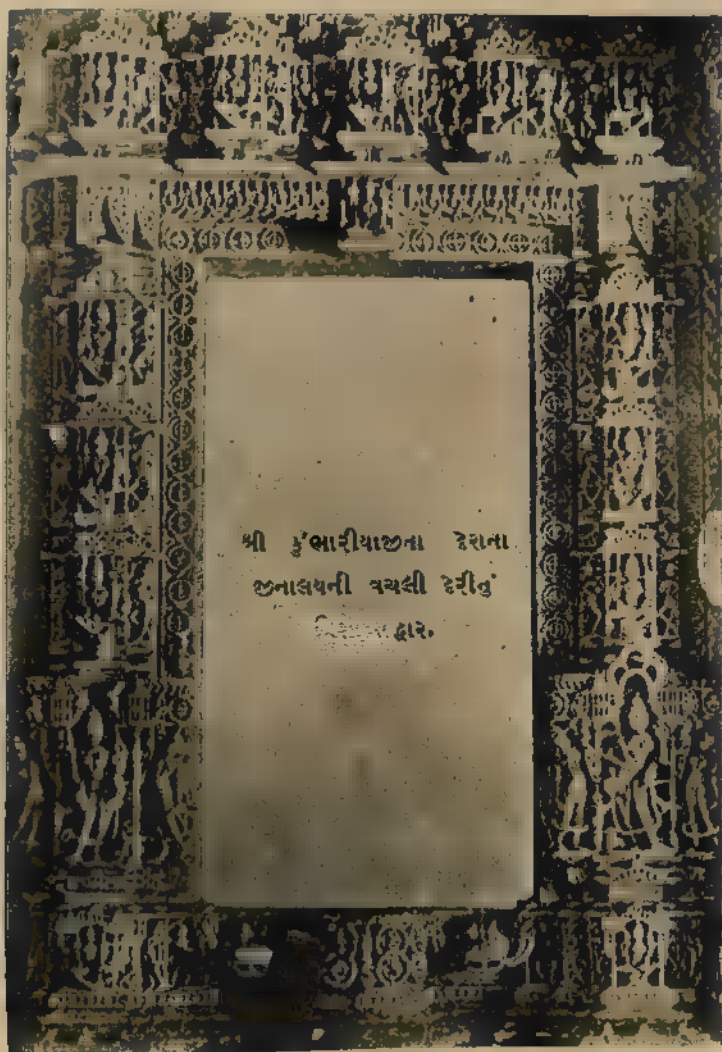 શ્રી કુંભારીયાજીના દેરાના
જીનાલયની વચલી દેરીનું
દ્વાર.